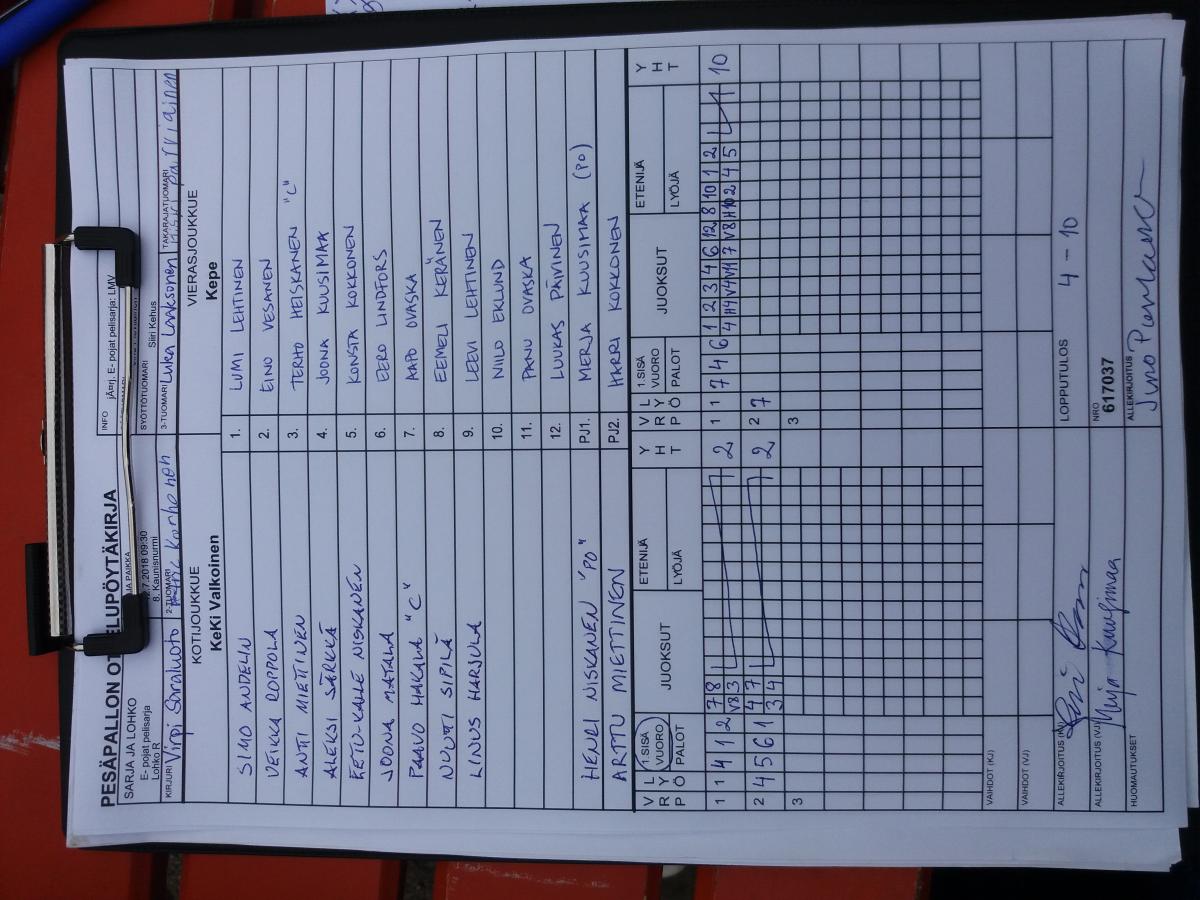 PESÄPALLON OTTELUPÖYTÄKIRJA
SARJA JA LOHKO
E- pojat pelisarja
Lohko R
JA PAIKKA
7.2018 09:30
8. Kaunisnurmi
INFO
E- pojat pelisarja: LMV
SYÖTTÖTUOMARI
Siiri Kehus
KIRJURI Virpi Saraluoto
2-TUOMARI Korhonen
3-TUOMARI Luka Laaksonen
TAKARAJATUOMARI Parviainen
KOTIJOUKKUE
KeKi Valkoinen
VIERASJOUKKUE
Kepe
SIMO ANDELIN 1. LUMI LEHTINEN
VEIKKA ROPPOLA 2. EINO VESANEN
ANTTI MIETTINEN 3. TERHO HEISKANEN "C"
ALEKSI SÄRKKÄ 4. JOONA KUUSIMAA
EETU-KALLE NISKANEN 5. KONSTA KOKKONEN
JOONA MATALA 6. EERO LINDFORS
PAAVO HAKALA "C" 7. AAPO OVASKA
NUUTTI SIPILÄ 8. EEMELI KERÄNEN
LINUS HARJULA 9. LEEVI LEHTINEN
10. NIILO EKLUND
11. PANU OVASKA
12. LUUKAS PÄIVINEN
HENRI NISKANEN "PO" PJ1. MERJA KUUSIMAA (PO)
ARTTU MIETTINEN PJ2. HARRI KOKKONEN
V R P L Y Ö 1.SISÄ VUORO PALOT JUOKSUT ETENIJÄ LYÖJÄ Y H T V R P L Y Ö 1.SISÄ VUORO PALOT JUOKSUT ETENIJÄ LYÖJÄ Y H T
1 1 4 1 2 7 8 2 1 1 7 4 6 1 2 3 4 6 12 8 10 1 2 10
V8 3 4 H4 V4 V11 7 V8 H10 2 4 5
2 4 5 6 1 4 7 2 2 7
3 4
3 3
VAIHDOT (KJ)
VAIHDOT (VJ)
ALLEKIRJOITUS (KJ) LOPPUTULOS 4 - 10
ALLEKIRJOITUS (VJ) Merja Kuusimaa NRO 617037
HUOMAUTUKSET ALLEKIRJOITUS